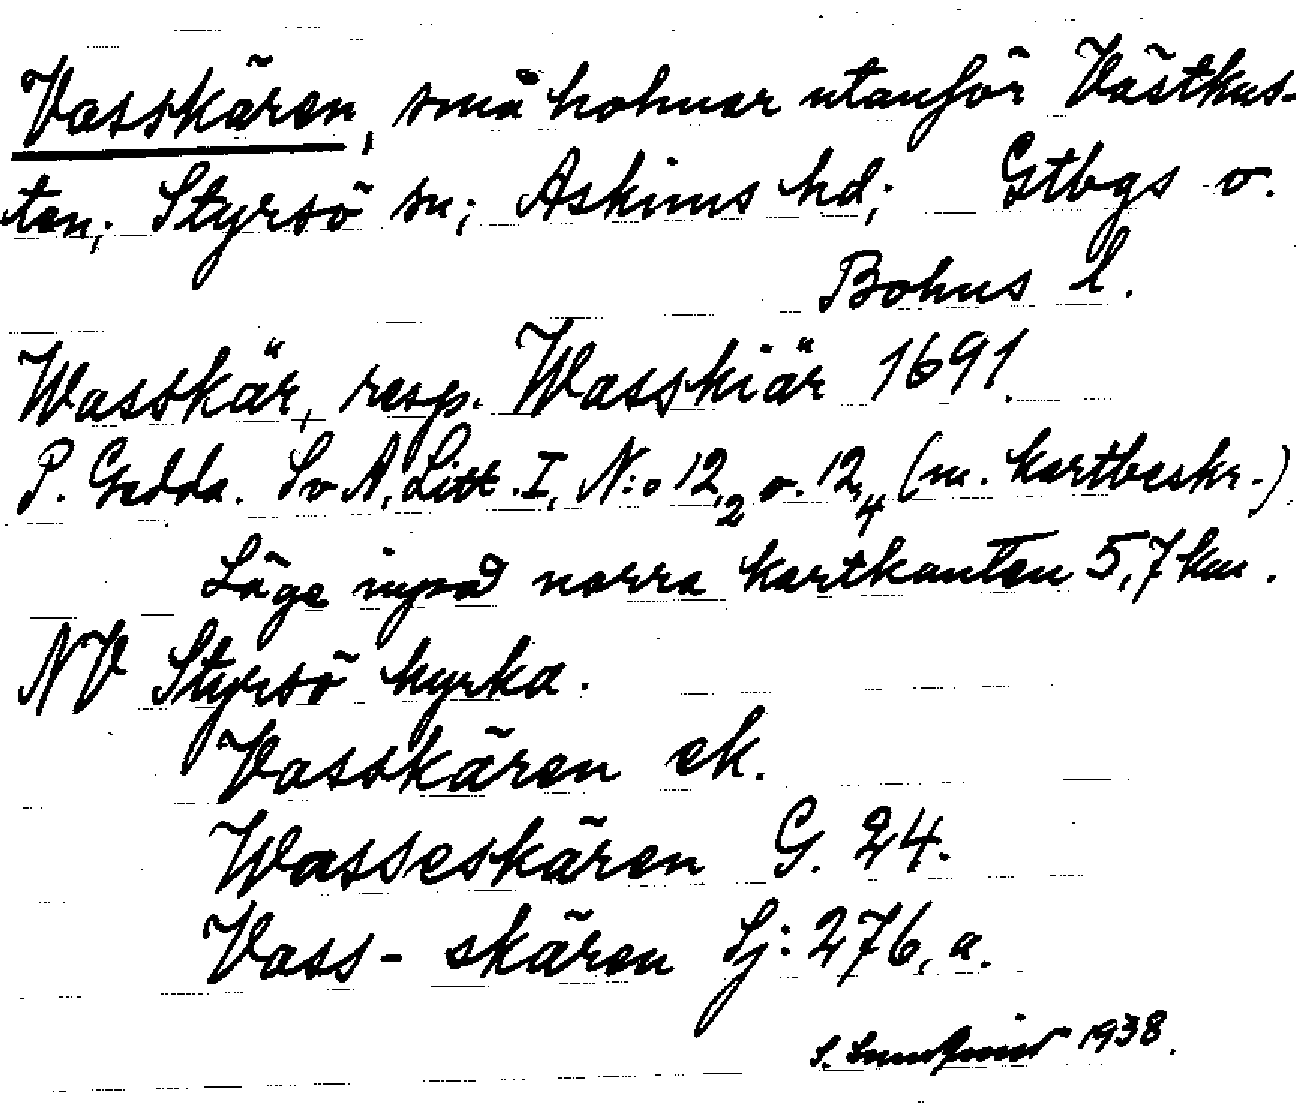 Vasskären, små holmar utanför Västkus-
ten; Styrsö sn; Askims hd; Gtbgs o.
Bohus l.
Wasskär, resp. Wasskiär 1691.
P. Gedda. Sv A, Litt. I, N:o 12,2 o. 12,4 (m. kartbeskr.)
Läge inpå norra kartkanten 5,7 km.
NV Styrsö kyrka.
Vasskären ek.
Wasseskären G. 24.
Vass- skären Sj: 276, a.
S. 1938.